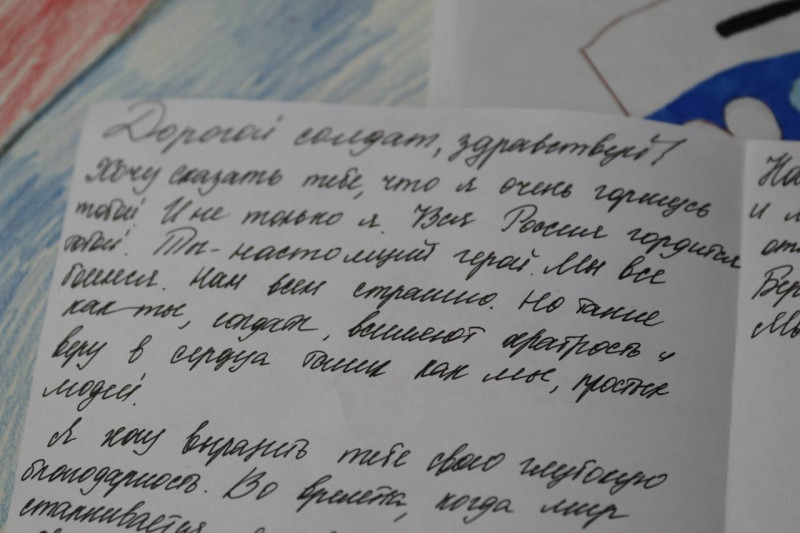 Дорогой солдат, здравствуй!
Хочу сказать тебе, что я очень горжусь
тобой. И не только я. Вся Россия гордится
тобой. Ты - настоящий герой. Мы все
боимся. Нам всем страшно. Но такие
как ты, солдат, вселяют храбрость и
веру в сердца таких как мы, простых
людей.
Я хочу выразить тебе свою глубокую
благодарность. Во времена, когда мир
сталкивается
На
и
Мы